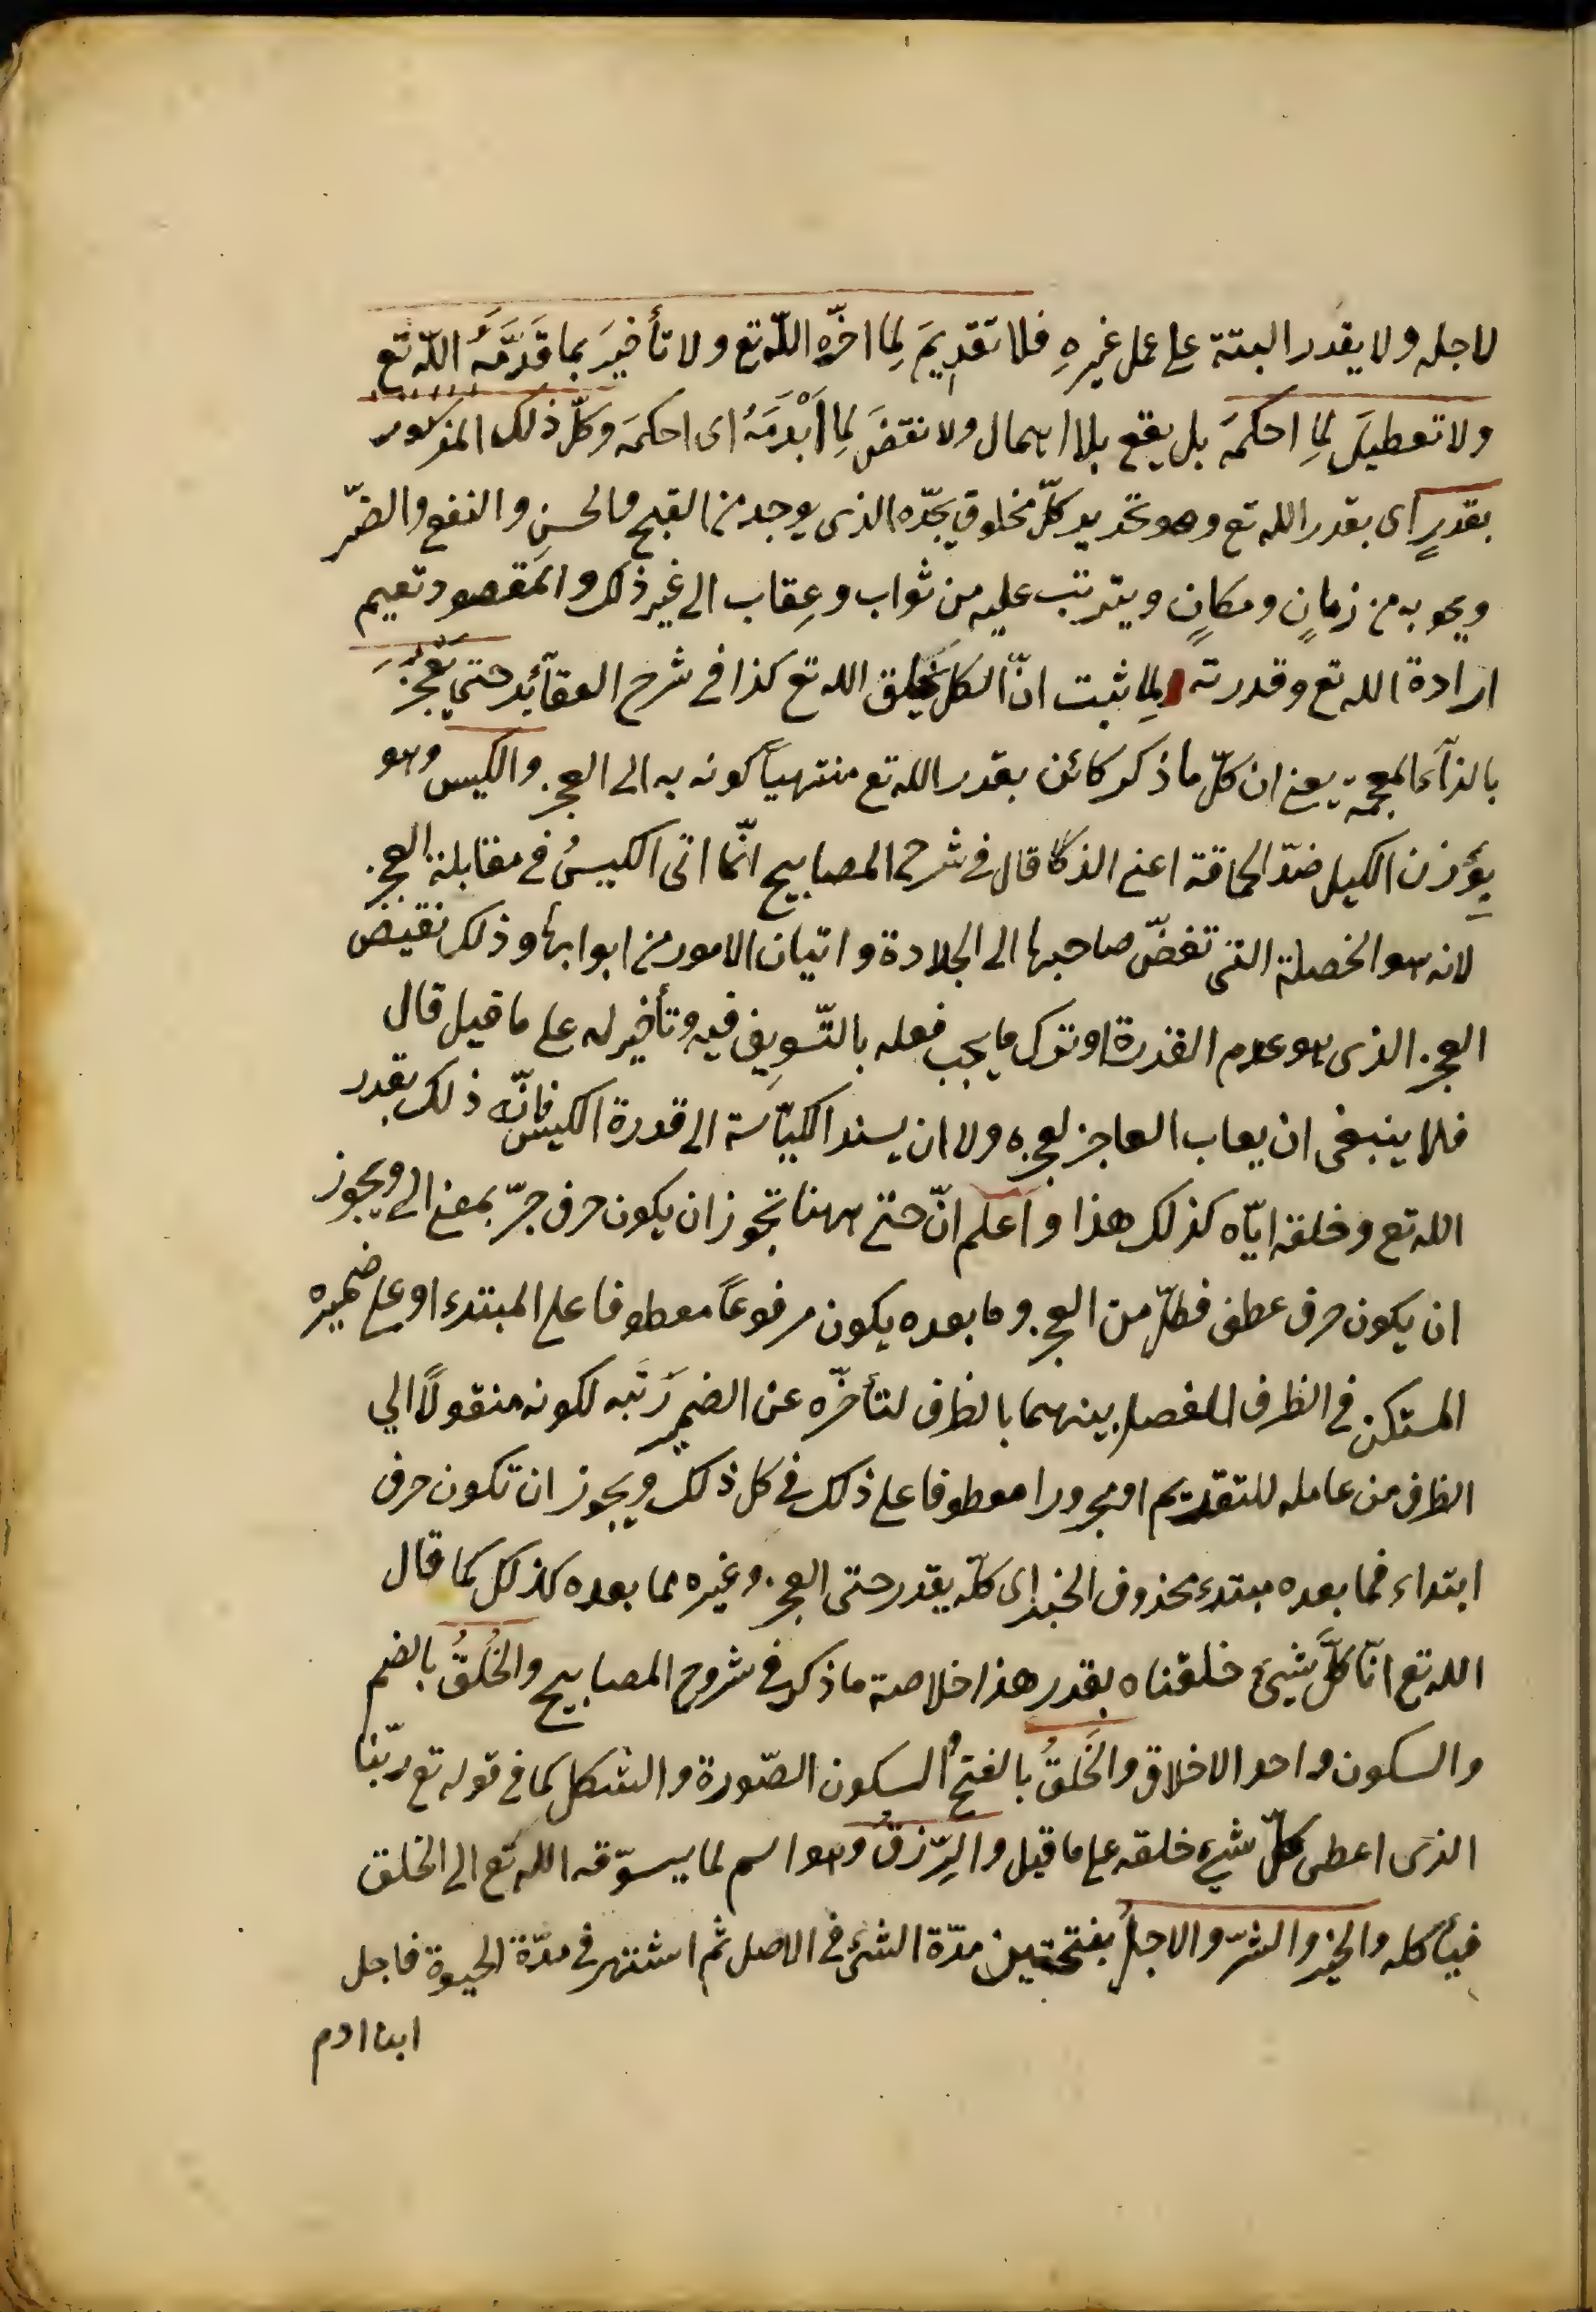 لاجله ولا يقدر البتة على عمل غيرهِ فلا تقدِيمَ لِمَا اخّره اللّه تع ولا تأخيرَ بما قَدَّمَهُ اللّه تع
ولا تعطيلَ لِمَا احكمَه بل يقع بلا اهمال ولا نقضَ لِمَا اَبْرَمَهُ اى احكمَه وكلّ ذلك المذكور
بقدرٍ اى بقدر الله تع وهو تحديد كلّ مخلوق بحدّه الذى يوجد من القبح والحسن والنفع والضّر
ويحويه من زمانٍ ومكانٍ ويترتب عليه من ثواب وعِقاب الى غير ذلك والمقصود تعيم
ارادة الله تع وقدرته لِمَا ثبت انّ الكل بخلق الله تع كذا فى شرح العقآئد حتى العَجْزَ
بالزآء المعجمة يعنى ان كلّ ما ذكر كائن بقدر الله تع منتهياً كونه به الى العجز والكيس وهو
بِوَزن الكيل ضدّ الحماقة اعنى الذكا قال فى شرح المصابيح انّما اتى الكيسُ فى مقابلة العجز
لانه هو الخصلة التى تفضّ صاحبها الى الجلادة واتيان الامور من ابوابها وذلك نقيض
العجز الذى هو عدم القدرة او ترك ما يجب فعله بالتّسويف فيه وتأخير له على ما قيل قال
فلا ينبغى ان يعاب العاجز لعجزه ولا ان يسند الكيّاسة الى قدرة الكيس فانّه ذلك بقدر
الله تع وخلقه ايّاه كذلك هذا واعلم انّ حتى ههنا تجوز ان يكون حرف جرّ بمعنى الى ويجوز
ان يكون حرف عطف فكلّ من العجز وما بعده يكون مرفوعاً معطوفا على المبتدء او على ضميره
المستكن فى الظرف للفصل بينهما بالظرف لتأخّره عن الضمير رَتَبه لكونه منقولاً الي
الظرف من عامله للتقديم او مجرورا معطوفا على ذلك فى كل ذلك ويجوز ان تكون حرف
ابتداء فما بعده مبتدء محذوف الخبر اى كلّه بقدر حتى العجز وغيره مما بعده كذلك كما قال
الله تع انّا كلَّ شيئ خلقناه بقدر هذا خلاصة ما ذكر فى شروح المصابيح والخُلُقُ بالضم
والسكون واحد الاخلاق والخَلقُ بالفتح والسكون الصّورة والشكل كما فى قوله تع ربّنا
الذى اعطى كلّ شىء خلقه على ما قيل والرِّزقُ وهو اسم لما يسوّقه الله تع الى الخلق
فيأكله والخير والشرّ والاجلُ بفتحتين مدّة الشئ فى الاصل ثم اشتهر فى مدّة الحيوة فاجل
ابن ادم